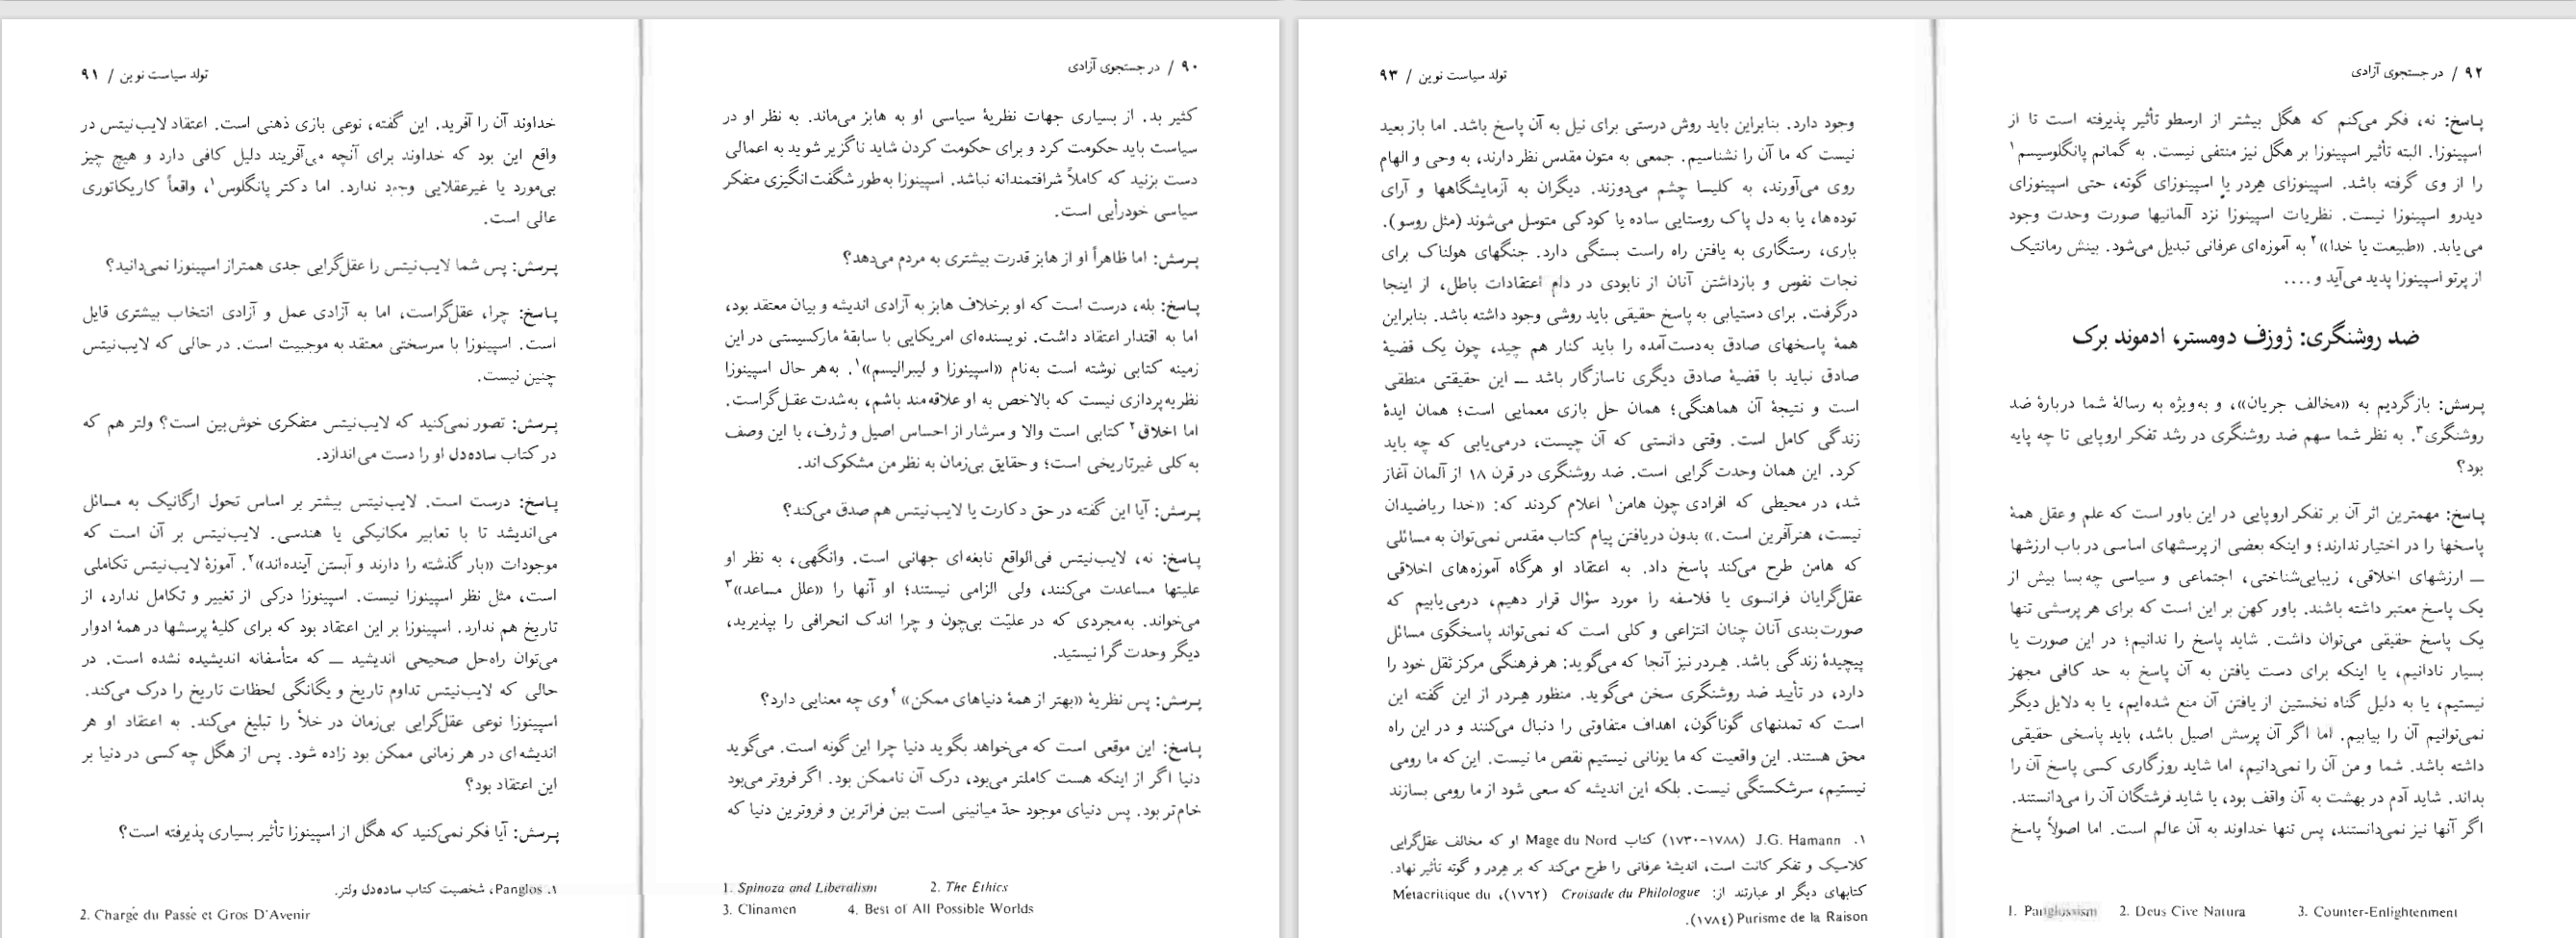 ۹۰ / در جستجوی آزادی
کثیر بد. از بسیاری جهات نظریهٔ سیاسی او به هابز می‌ماند. به نظر او در
سیاست باید حکومت کرد و برای حکومت کردن شاید ناگزیر شوید به اعمالی
دست بزنید که کاملاً شرافتمندانه نباشد. اسپینوزا به‌طور شگفت‌انگیزی متفکر
سیاسی خودرأیی است.
پرسش: اما ظاهراً او از هابز قدرت بیشتری به مردم می‌دهد؟
پاسخ: بله، درست است که او برخلاف هابز به آزادی اندیشه و بیان معتقد بود،
اما به اقتدار اعتقاد داشت. نویسنده‌ای امریکایی با سابقهٔ مارکسیستی در این
زمینه کتابی نوشته است به‌نام «اسپینوزا و لیبرالیسم»۱. به‌هر حال اسپینوزا
نظریه‌پردازی نیست که بالاخص به او علاقه‌مند باشم، به‌شدت عقل‌گراست.
اما اخلاق۲ کتابی است والا و سرشار از احساس اصیل و ژرف، با این وصف
به کلی غیرتاریخی است؛ و حقایق بی‌زمان به نظر من مشکوک‌اند.
پرسش: آیا این گفته در حق دکارت یا لایب‌نیتس هم صدق می‌کند؟
پاسخ: نه، لایب‌نیتس فی‌الواقع نابغه‌ای جهانی است. وانگهی، به نظر او
علیتها مساعدت می‌کنند، ولی الزامی نیستند؛ او آنها را «علل مساعد»۳
می‌خواند. به‌مجردی که در علیّت بی‌چون و چرا اندک انحرافی را بپذیرید،
دیگر وحدت گرا نیستید.
پرسش: پس نظریهٔ «بهتر از همهٔ دنیاهای ممکن»۴ وی چه معنایی دارد؟
پاسخ: این موقعی است که می‌خواهد بگوید دنیا چرا این گونه است. می‌گوید
دنیا اگر از اینکه هست کاملتر می‌بود، درک آن ناممکن بود. اگر فروتر می‌بود
خام‌تر بود. پس دنیای موجود حدّ میانینی است بین فراترین و فروترین دنیا که
1. Spinoza and Liberalism 2. The Ethics
3. Clinamen 4. Best of All Possible Worlds
تولد سیاست نوین / ۹۱
خداوند آن را آفرید. این گفته، نوعی بازی ذهنی است. اعتقاد لایب‌نیتس در
واقع این بود که خداوند برای آنچه می‌آفریند دلیل کافی دارد و هیچ چیز
بی‌مورد یا غیرعقلایی وجود ندارد. اما دکتر پانگلوس۱، واقعاً کاریکاتوری
عالی است.
پرسش: پس شما لایب‌نیتس را عقل‌گرایی جدی همتراز اسپینوزا نمی‌دانید؟
پاسخ: چرا، عقل‌گراست، اما به آزادی عمل و آزادی انتخاب بیشتری قایل
است. اسپینوزا با سرسختی معتقد به موجبیت است. در حالی که لایب‌نیتس
چنین نیست.
پرسش: تصور نمی‌کنید که لایب‌نیتس متفکری خوش‌بین است؟ ولتر هم که
در کتاب ساده‌دل او را دست می‌اندازد.
پاسخ: درست است. لایب‌نیتس بیشتر بر اساس تحول ارگانیک به مسائل
می‌اندیشد تا با تعابیر مکانیکی یا هندسی. لایب‌نیتس بر آن است که
موجودات «بار گذشته را دارند و آبستن آینده‌اند»۲. آموزهٔ لایب‌نیتس تکاملی
است، مثل نظر اسپینوزا نیست. اسپینوزا درکی از تغییر و تکامل ندارد، از
تاریخ هم ندارد. اسپینوزا بر این اعتقاد بود که برای کلیهٔ پرسشها در همهٔ ادوار
می‌توان راه‌حل صحیحی اندیشید — که متأسفانه اندیشیده نشده است. در
حالی که لایب‌نیتس تداوم تاریخ و یگانگی لحظات تاریخ را درک می‌کند.
اسپینوزا نوعی عقل‌گرایی بی‌زمان در خلأ را تبلیغ می‌کند. به اعتقاد او هر
اندیشه‌ای در هر زمانی ممکن بود زاده شود. پس از هگل چه کسی در دنیا بر
این اعتقاد بود؟
پرسش: آیا فکر نمی‌کنید که هگل از اسپینوزا تأثیر بسیاری پذیرفته است؟
۱. Panglos، شخصیت کتاب ساده‌دل ولتر.
2. Chargé du Passé et Gros D'Avenir
۹۲ / در جستجوی آزادی
پاسخ: نه، فکر می‌کنم که هگل بیشتر از ارسطو تأثیر پذیرفته است تا از
اسپینوزا. البته تأثیر اسپینوزا بر هگل نیز منتفی نیست. به گمانم پانگلوسیسم۱
را از وی گرفته باشد. اسپینوزای هِردر یا اسپینوزای گوته، حتی اسپینوزای
دیدرو اسپینوزا نیست. نظریات اسپینوزا نزد آلمانیها صورت وحدت وجود
می‌یابد. «طبیعت یا خدا»۲ به آموزه‌ای عرفانی تبدیل می‌شود. بینش رمانتیک
از پرتو اسپینوزا پدید می‌آید و....
ضد روشنگری: ژوزف دومستر، ادموند برک
پرسش: بازگردیم به «مخالف جریان»، و به‌ویژه به رسالهٔ شما دربارهٔ ضد
روشنگری۳. به نظر شما سهم ضد روشنگری در رشد تفکر اروپایی تا چه پایه
بود؟
پاسخ: مهمترین اثر آن بر تفکر اروپایی در این باور است که علم و عقل همهٔ
پاسخها را در اختیار ندارند؛ و اینکه بعضی از پرسشهای اساسی در باب ارزشها
— ارزشهای اخلاقی، زیبایی‌شناختی، اجتماعی و سیاسی چه‌بسا بیش از
یک پاسخ معتبر داشته باشند. باور کهن بر این است که برای هر پرسشی تنها
یک پاسخ حقیقی می‌توان داشت. شاید پاسخ را ندانیم؛ در این صورت یا
بسیار نادانیم، یا اینکه برای دست یافتن به آن پاسخ به حد کافی مجهز
نیستیم، یا به دلیل گناه نخستین از یافتن آن منع شده‌ایم، یا به دلایل دیگر
نمی‌توانیم آن را بیابیم. اما اگر آن پرسش اصیل باشد، باید پاسخی حقیقی
داشته باشد. شما و من آن را نمی‌دانیم، اما شاید روزگاری کسی پاسخ آن را
بداند. شاید آدم در بهشت به آن واقف بود، یا شاید فرشتگان آن را می‌دانستند.
اگر آنها نیز نمی‌دانستند، پس تنها خداوند به آن عالم است. اما اصولاً پاسخ
1. Panglossism 2. Deus Cive Natura 3. Counter-Enlightenment
تولد سیاست نوین / ۹۳
وجود دارد. بنابراین باید روش درستی برای نیل به آن پاسخ باشد. اما باز بعید
نیست که ما آن را نشناسیم. جمعی به متون مقدس نظر دارند، به وحی و الهام
روی می‌آورند، به کلیسا چشم می‌دوزند. دیگران به آزمایشگاهها و آرای
توده‌ها، یا به دل پاک روستایی ساده یا کودکی متوسل می‌شوند (مثل روسو).
باری، رستگاری به یافتن راه راست بستگی دارد. جنگهای هولناک برای
نجات نفوس و بازداشتن آنان از نابودی در دام اعتقادات باطل، از اینجا
درگرفت. برای دستیابی به پاسخ حقیقی باید روشی وجود داشته باشد. بنابراین
همهٔ پاسخهای صادق به‌دست‌آمده را باید کنار هم چید، چون یک قضیهٔ
صادق نباید با قضیهٔ صادق دیگری ناسازگار باشد — این حقیقتی منطقی
است و نتیجهٔ آن هماهنگی؛ همان حل بازی معمایی است؛ همان ایدهٔ
زندگی کامل است. وقتی دانستی که آن چیست، درمی‌یابی که چه باید
کرد. این همان وحدت گرایی است. ضد روشنگری در قرن ۱۸ از آلمان آغاز
شد، در محیطی که افرادی چون هامن۱ اعلام کردند که: «خدا ریاضیدان
نیست، هنرآفرین است.» بدون دریافتن پیام کتاب مقدس نمی‌توان به مسائلی
که هامن طرح می‌کند پاسخ داد. به اعتقاد او هرگاه آموزه‌های اخلاقی
عقل‌گرایان فرانسوی یا فلاسفه را مورد سؤال قرار دهیم، درمی‌یابیم که
صورت‌بندی آنان چنان انتزاعی و کلی است که نمی‌تواند پاسخگوی مسائل
پیچیدهٔ زندگی باشد. هِردر نیز آنجا که می‌گوید: هر فرهنگی مرکز ثقل خود را
دارد، در تأیید ضد روشنگری سخن می‌گوید. منظور هِردر از این گفته این
است که تمدنهای گوناگون، اهداف متفاوتی را دنبال می‌کنند و در این راه
محق هستند. این واقعیت که ما یونانی نیستیم نقص ما نیست. این که ما رومی
نیستیم، سرشکستگی نیست. بلکه این اندیشه که سعی شود از ما رومی بسازند
۱. J.G. Hamann (۱۷۸۸-۱۷۳۰) کتاب Mage du Nord او که مخالف عقل‌گرایی
کلاسیک و تفکر کانت است، اندیشهٔ عرفانی را طرح می‌کند که بر هِردر و گوته تأثیر نهاد.
کتابهای دیگر او عبارتند از: Croisade du Philologue (۱۷۶۲)، Métacritique du
Purisme de la Raison (۱۷۸٤).